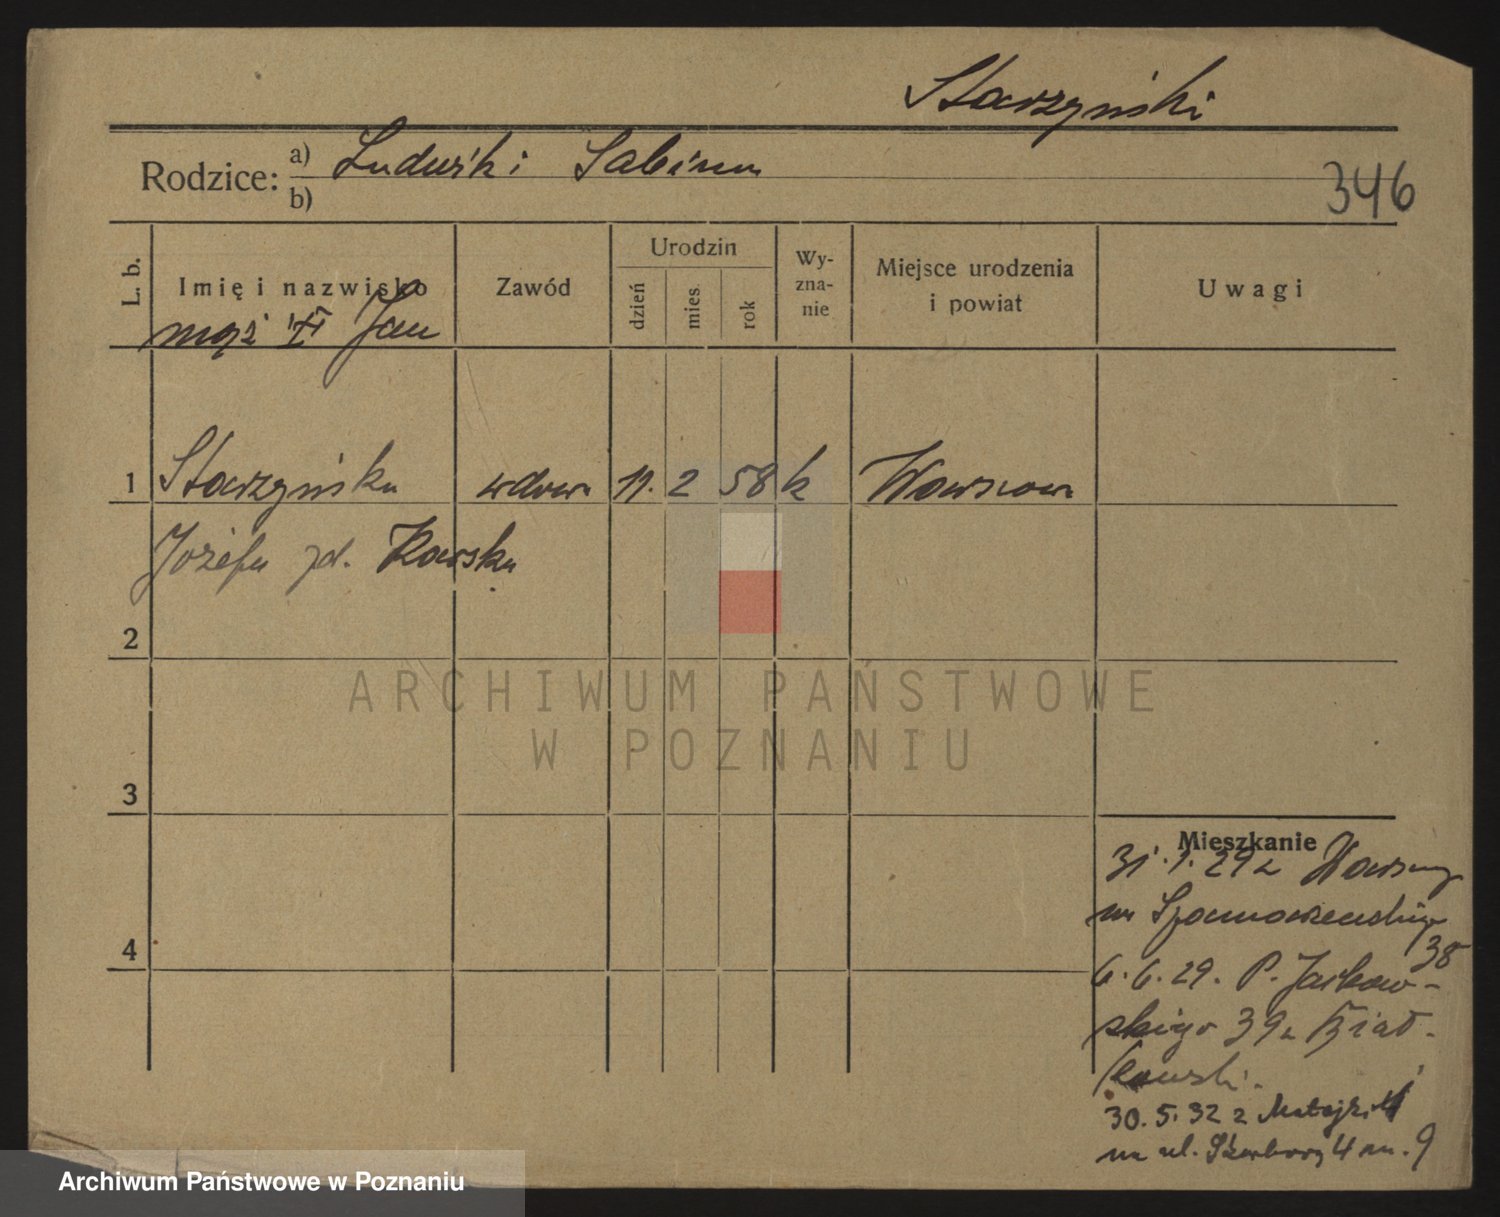 Starzyński
Rodzice: a) Ludwik i Sabina
b)
346
L. b.
Imię i nazwisko
Zawód
Urodzin
dzień
mies.
rok
Wy-
zna-
nie
Miejsce urodzenia
i powiat
Uwagi
mąż Jan
1 Starzyńska wdowa 11. 2 58 k Warszawa
Józefa zd. Rawska
2
3
4
ARCHIWUM PAŃSTWOWE
W POZNANIU
Mieszkanie
31.1.29 z Warszawy
na
38
6.6.29. P. Jackow-
skiego 39
30.5.32 z Matejki
na ul. Skarbową 4 m. 9
Archiwum Państwowe w Poznaniu